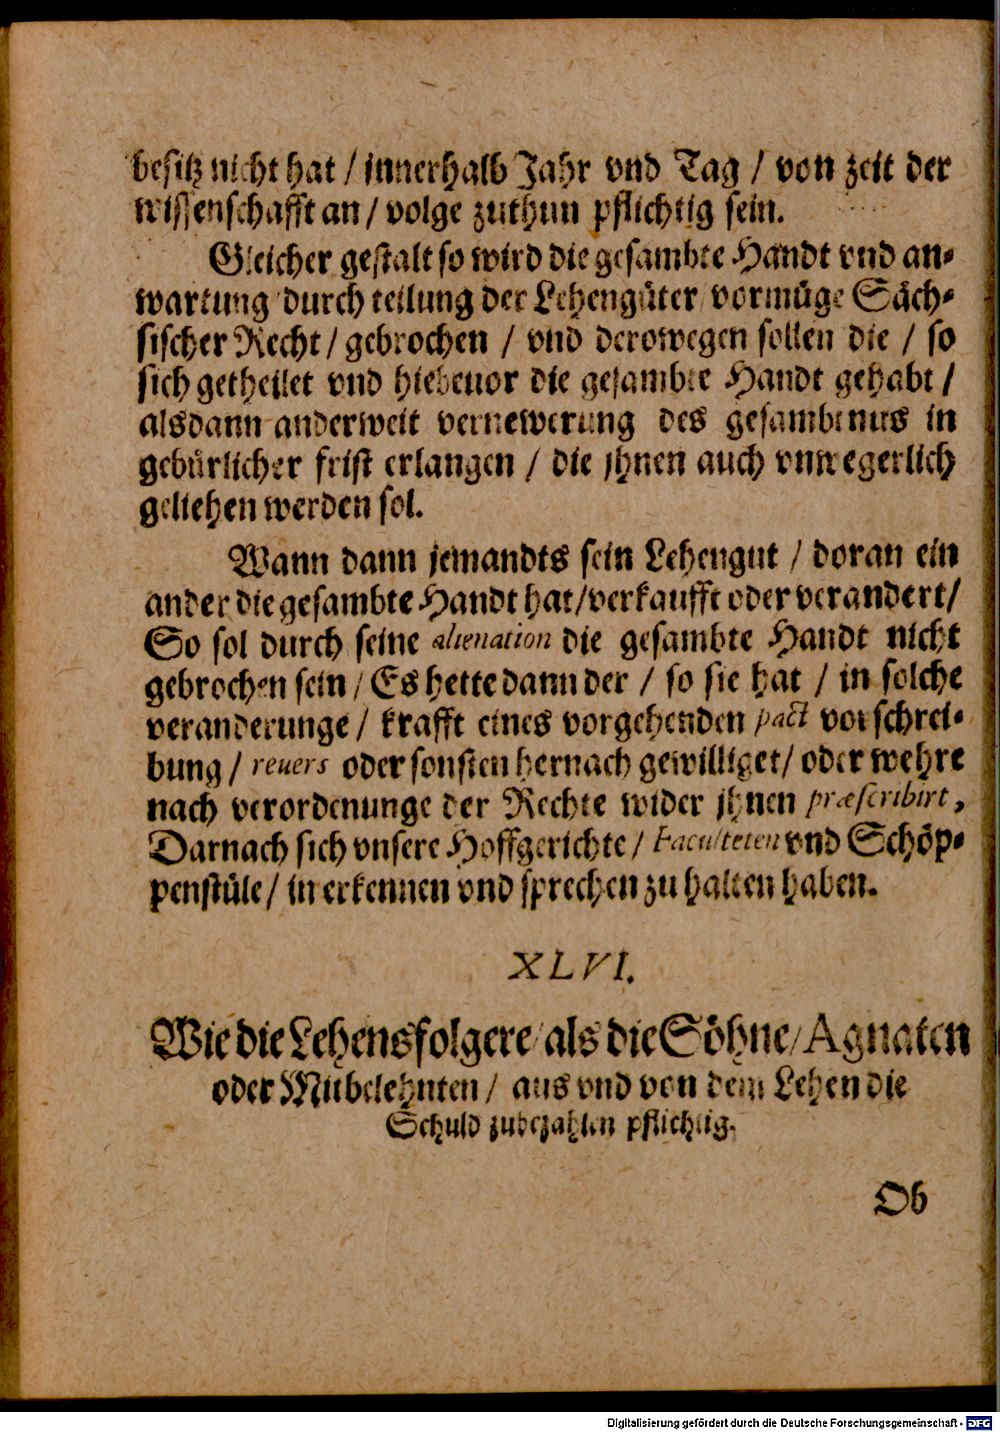 besitz nicht hat / innerhalb Jahr vnd Tag / von zeit der
wissenschafft an / volge zuthun pflichtig sein.
Gleicher gestalt so wird die gesambte Handt vnd an-
wartung durch teilung der Lehengüter / vormüge Säch-
sischer Recht / gebrochen / vnd derowegen sollen die / so
sich getheilet vnd hiebeuor die gesambte Handt gehabt /
alsdann anderweit vernewerung des gesambtnus in
gebürlicher frist erlangen / die jhnen auch vnwegerlich
geliehen werden sol.
Wann dann jemandts sein Lehengut / doran ein
ander die gesambte Handt hat / verkaufft oder verandert /
So sol durch seine alienation die gesambte Handt nicht
gebrochen sein / Es hette dann der / so sie hat / in solche
veranderunge / krafft eines vorgehenden pact vorschrei-
bung / reuers oder sonsten hernach gewilliget / oder wehre
nach verordenunge der Rechte wider jhnen præscribirt,
Darnach sich vnsere Hoffgerichte / Faculteten vnd Schöp-
penstüle / in erkennen vnd sprechen zu halten haben.
XLVI.
Wie die Lehensfolgere / als die Söhne / Agnaten
oder Mitbelehnten / aus vnd von dem Lehen die
Schuld zubezahlen pflichtig.
Ob
Digitalisierung gefördert durch die Deutsche Forschungsgemeinschaft - DFG